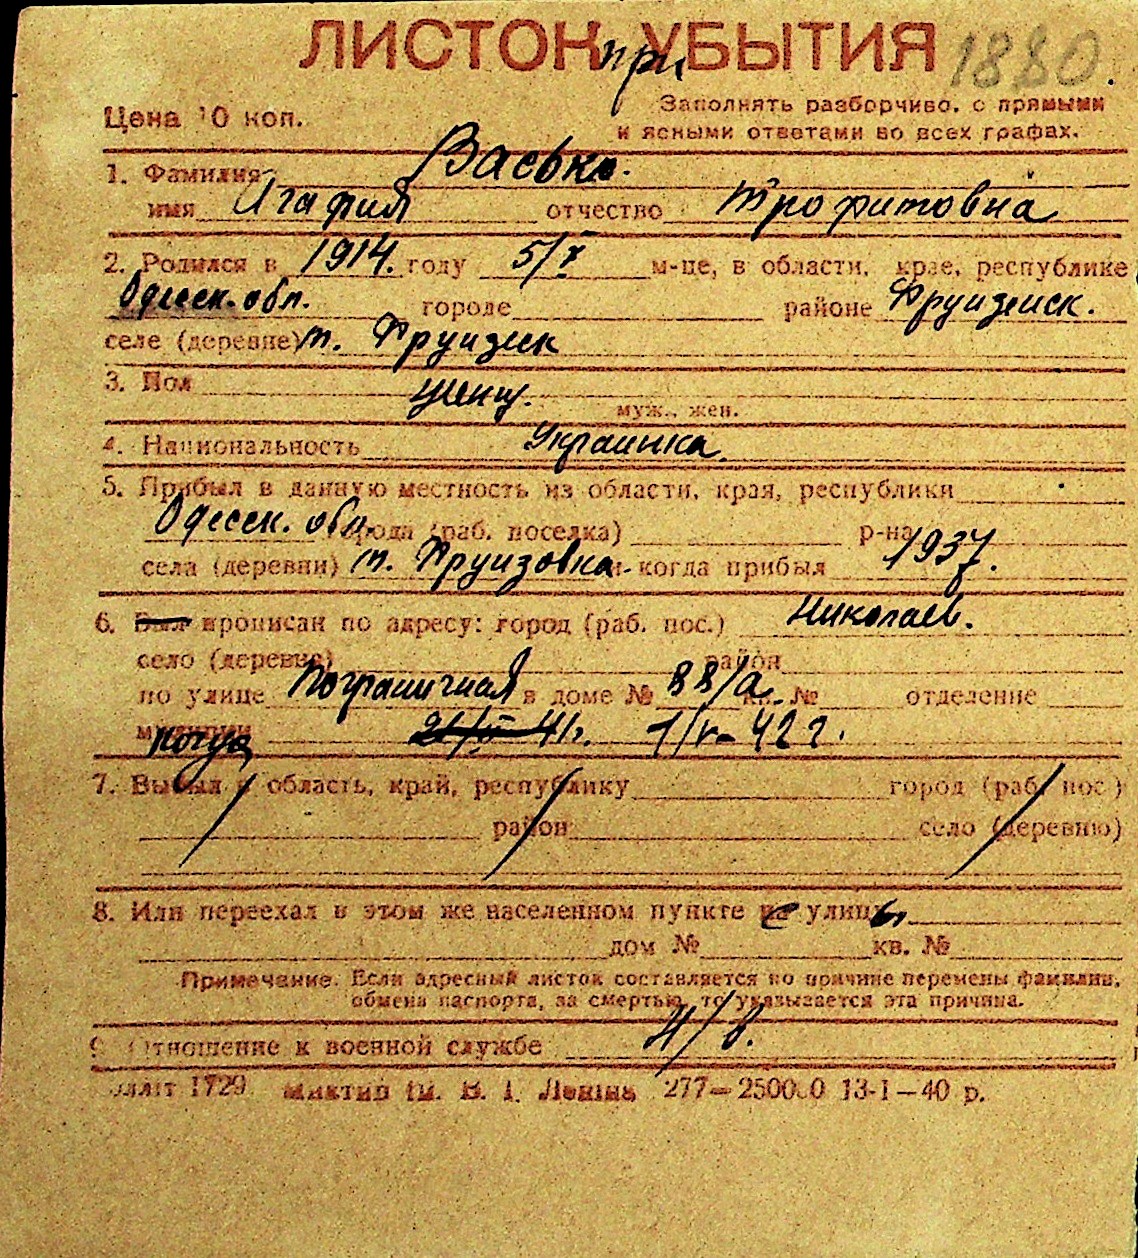 ЛИСТОК при УБЫТИЯ 1880.
Цена 10 коп.
Заполнять разборчиво, с прямыми
и ясными ответами во всех графах.
1. Фамилия Васько.
имя Агафия отчество Трофимовна
2. Родился в 1914. году 5/X м-це, в области, крае, республике
Одесск. обл. городе районе Фрунзенск.
селе (деревне) т. Фрунзенк
3. Пол женщ.
муж., жен.
4. Национальность Украинка.
5. Прибыл в данную местность из области, края, республики
Одесск. обл. города (раб. поселка) р-на
села (деревни) т. Фрунзовка. и когда прибыл 1937.
6. Был прописан по адресу: город (раб. пос.) Николаев.
село (деревне) район
по улице Пограничная в доме № 88/а кв. № отделение
милиции когда 41г. 1/V-42 г.
7. Выбыл в область, край, республику город (раб. пос.)
район село (деревню)
8. Или переехал в этом же населенном пункте с улицы
дом № кв. №
Примечание. Если адресный листок составляется по причине перемены фамилии,
обмена паспорта, за смертью, то указывается эта причина.
9. Отношение к военной службе Н/в.
1729 им. В. І. Леніна 277—250000 13-I—40 р.